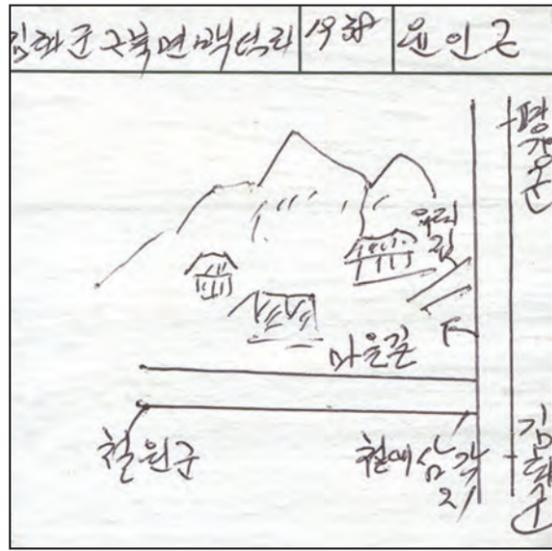 김화군 근북면 백덕리 19세 윤인근
평강군
우리
집
마을길
철원군
천예삼각지
김화군